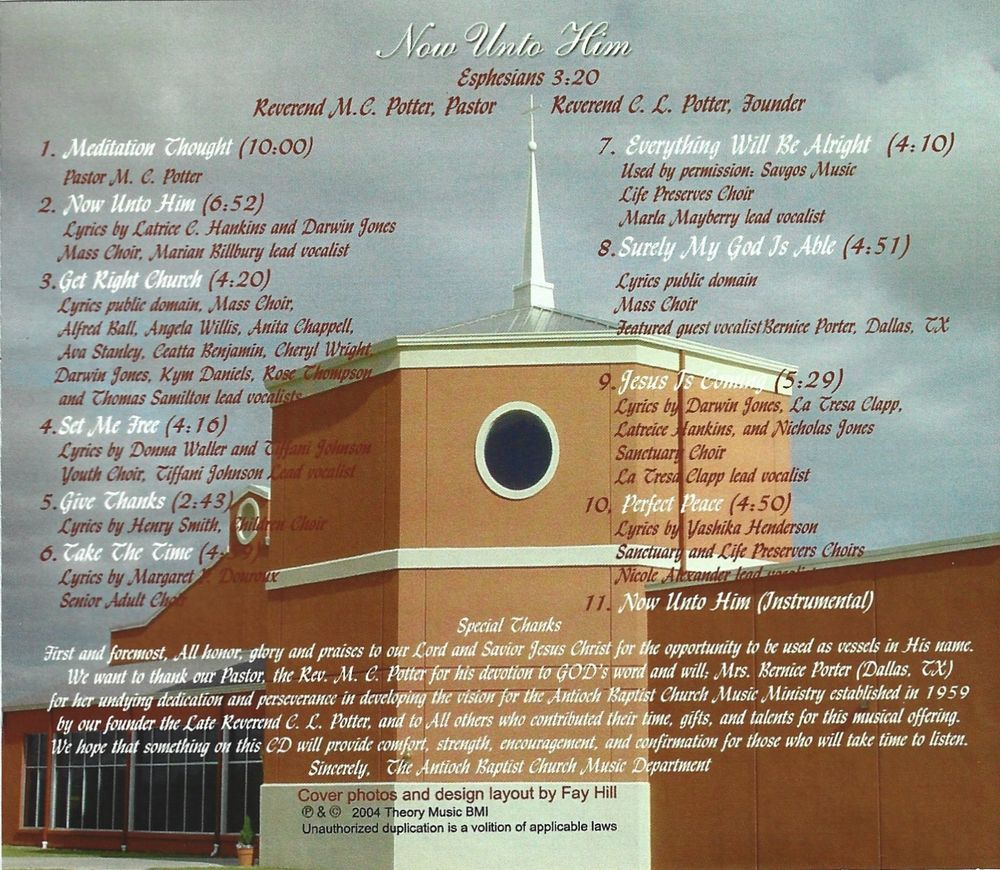 Now Unto Him
Esphesians 3:20
Reverend M.C. Potter, Pastor Reverend C. L. Potter, Founder
1. Meditation Thought (10:00)
Pastor M. C. Potter
2. Now Unto Him (6:52)
Lyrics by Latrice C. Hankins and Darwin Jones
Mass Choir, Marian Billbury lead vocalist
3. Get Right Church (4:20)
Lyrics public domain, Mass Choir,
Alfred Ball, Angela Willis, Anita Chappell,
Ava Stanley, Ceatta Benjamin, Cheryl Wright,
Darwin Jones, Kym Daniels, Rose Thompson
and Thomas Samilton lead vocalists
4. Set Me Free (4:16)
Lyrics by Donna Waller and Tiffani Johnson
Youth Choir, Tiffani Johnson Lead vocalist
5. Give Thanks (2:43)
Lyrics by Henry Smith, Children Choir
6. Take The Time
Lyrics by Margaret Douroux
Senior Adult Choir
7. Everything Will Be Alright (4:10)
Used by permission: Savgos Music
Life Preserves Choir
Marla Mayberry lead vocalist
8. Surely My God Is Able (4:51)
Lyrics public domain
Mass Choir
Featured guest vocalist Bernice Porter, Dallas, TX
9. Jesus Is Coming (5:29)
Lyrics by Darwin Jones, La Tresa Clapp,
Latreice Hankins, and Nicholas Jones
Sanctuary Choir
La Tresa Clapp lead vocalist
10. Perfect Peace (4:50)
Lyrics by Yashika Henderson
Sanctuary and Life Preservers Choirs
Nicole Alexander lead vocalist
11. Now Unto Him (Instrumental)
Special Thanks
First and foremost, All honor, glory and praises to our Lord and Savior Jesus Christ for the opportunity to be used as vessels in His name.
We want to thank our Pastor, the Rev. M. C. Potter for his devotion to GOD's word and will; Mrs. Bernice Porter (Dallas, TX)
for her undying dedication and perseverance in developing the vision for the Antioch Baptist Church Music Ministry established in 1959
by our founder the Late Reverend C. L. Potter, and to All others who contributed their time, gifts, and talents for this musical offering.
We hope that something on this CD will provide comfort, strength, encouragement, and confirmation for those who will take time to listen.
Sincerely, The Antioch Baptist Church Music Department
Cover photos and design layout by Fay Hill
℗ & © 2004 Theory Music BMI
Unauthorized duplication is a volition of applicable laws